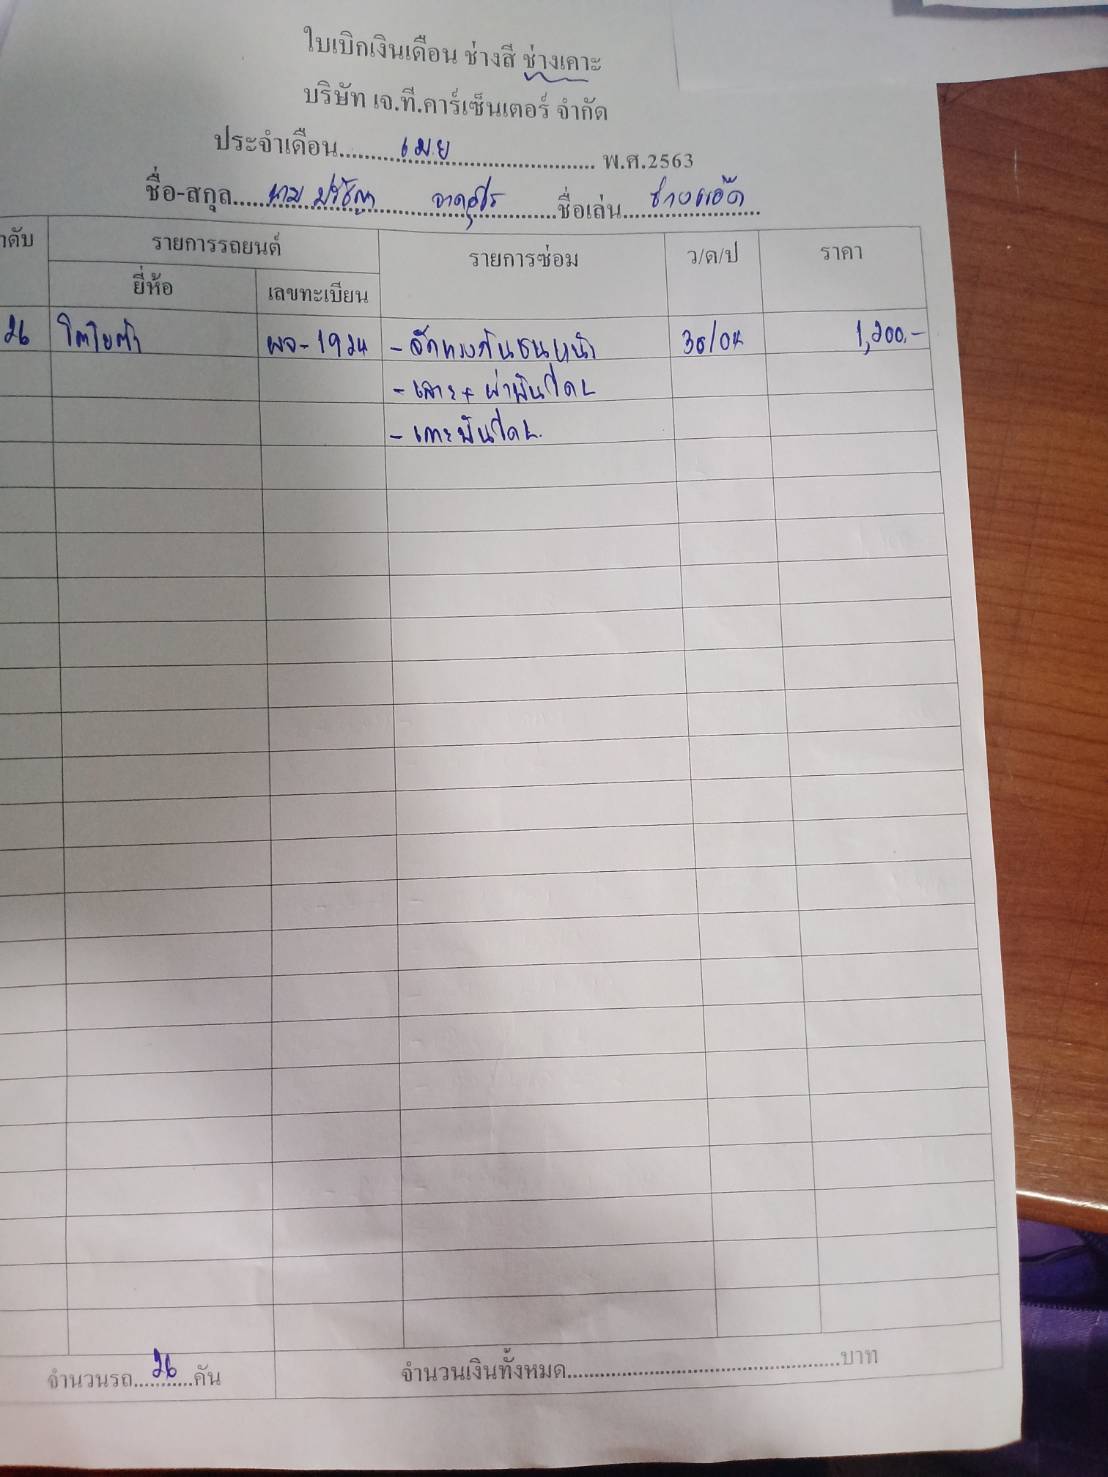 ใบเบิกเงินเดือน ช่างสี ช่างเคาะ
บริษัท เจ.ที.คาร์เซ็นเตอร์ จำกัด
ประจำเดือน.........เมย......................... พ.ศ.2563
ชื่อ-สกุล....นาย ปรัชญา .........ชื่อเล่น...ช่างแอ๊ด
รายการรถยนต์ รายการซ่อม ว/ด/ป ราคา
ยี่ห้อ เลขทะเบียน
26 โตโยต้า ผจ-1924 - จัดทรงกันชนหน้า 30/04 1,200.-
- เลาะ+ผ่าบันไดL
- เคาะบันไดL
จำนวนรถ....26...คัน จำนวนเงินทั้งหมด..............................บาท